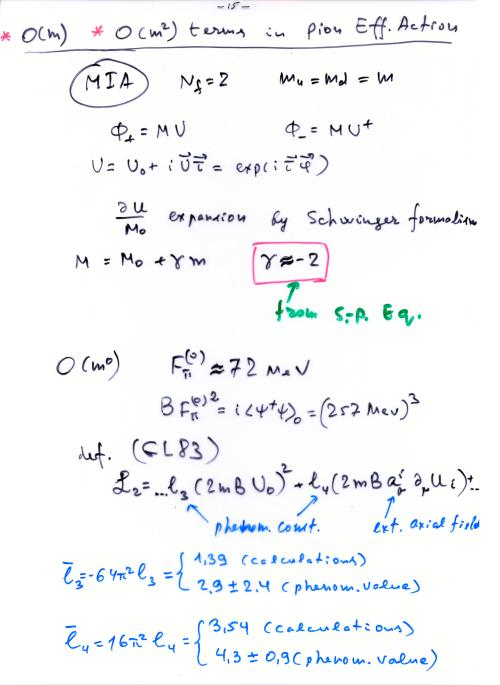 -15-
* O(m) * O(m²) terms in Pion Eff. Action
MIA N_f = 2 m_u = m_d = m
Φ₊ = MU Φ₋ = MU⁺
U = U₀ + i U⃗ τ⃗ = exp(i τ⃗ φ⃗)
∂U/M₀ expansion by Schwinger formalism
M = M₀ + γm γ ≈ -2
from S.-P. Eq.
O(m⁰) F_π^(0) ≈ 72 MeV
B F_π^(0)2 = i<ψ⁺ψ>₀ = (257 MeV)³
def. (GL83)
ℒ₂ = ... l₃ (2mB U₀)² + l₄ (2mB a_μ^i ∂_μ U_i) + ..
phenom. const. ext. axial field
l̄₃ = -64π² l₃ = { 1,39 (calculations)
2,9 ± 2.4 (phenom. value)
l̄₄ = 16π² l₄ = { 3,54 (calculations)
4,3 ± 0,9 (phenom. value)